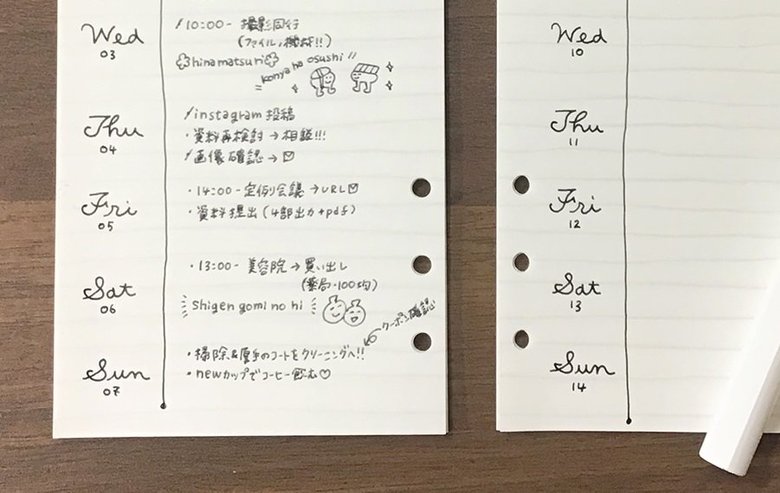 Wed
03
10:00- 撮影同行
(ファイル、機材!!)
hinamatsuri
konya ha osushi!!
Thu
04
instagram 投稿
・資料再検討→相談!!!
画像確認→
Fri
05
・14:00- 定例会議→URL
・資料提出(4部出力+pdf)
Sat
06
・13:00- 美容院→買い出し
(薬局・100均)
shigen gomi no hi
クーポン確認
Sun
07
・掃除&厚手のコートをクリーニングへ!!
・newカップでコーヒー飲む♡
Wed
10
Thu
11
Fri
12
Sat
13
Sun
14